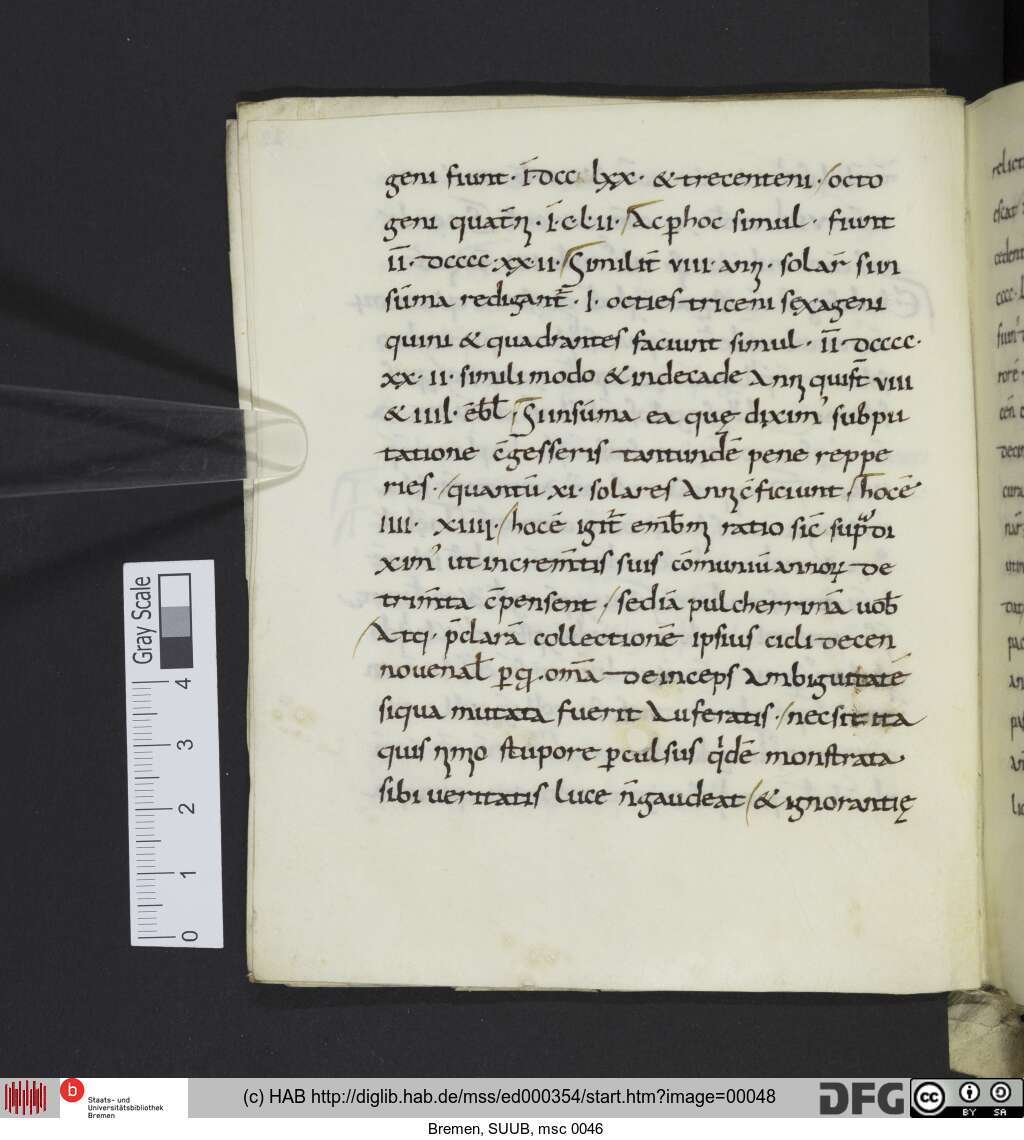 geni fiunt · ī · dcc lxx · & trecenteni · octo
geni quat̄n · ī · c · l · ii · Ac phoc simul · fiunt
īī · dcccc · xx · ii · Similit̄ viii · ann · solar̄ si in
sūma redigant̄ · I · octies triceni sęxageni
quini & quadrantes faciunt simul · īī · dcccc ·
xx · ii · simili modo & indecade Ann quisт̄ viii
& iiil · ēbl · Si insūma ea quę diximꝰ subpu
tatione c̄gesseris tantundē pene reppe
ries · quantū xi · solares Ann c̄ficiunt · hocē
iiii · xiiii · hocē igit̄ embm ratio sic̄ sup̄di
ximꝰ ut increm̄tis suis cōmuniū annoꝝ de
trim̄ta c̄pensent · sediā pulcherrimā uob̄
Atq · p̄clarā collectionē ipsius cicli decen
novenal̄ p̱ q · om̄ā deinceps Ambiguitatē
siqua mutata fuerit Auferatis · nec sit ita
quis nmo stupore ꝑculsus qͥdē monstrata
sibi ueritatis luce n̄ gaudeat & ignorantię
Gray Scale
4
3
2
1
0
b
Staats- und
Universitätsbibliothek
Bremen
(c) HAB http://diglib.hab.de/mss/ed000354/start.htm?image=00048
DFG
cc
BY SA
Bremen, SUUB, msc 0046